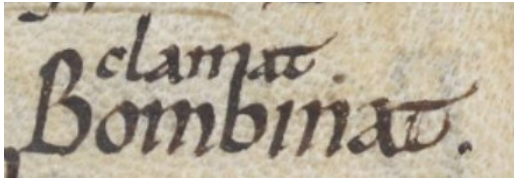 clamat
Bombinat.